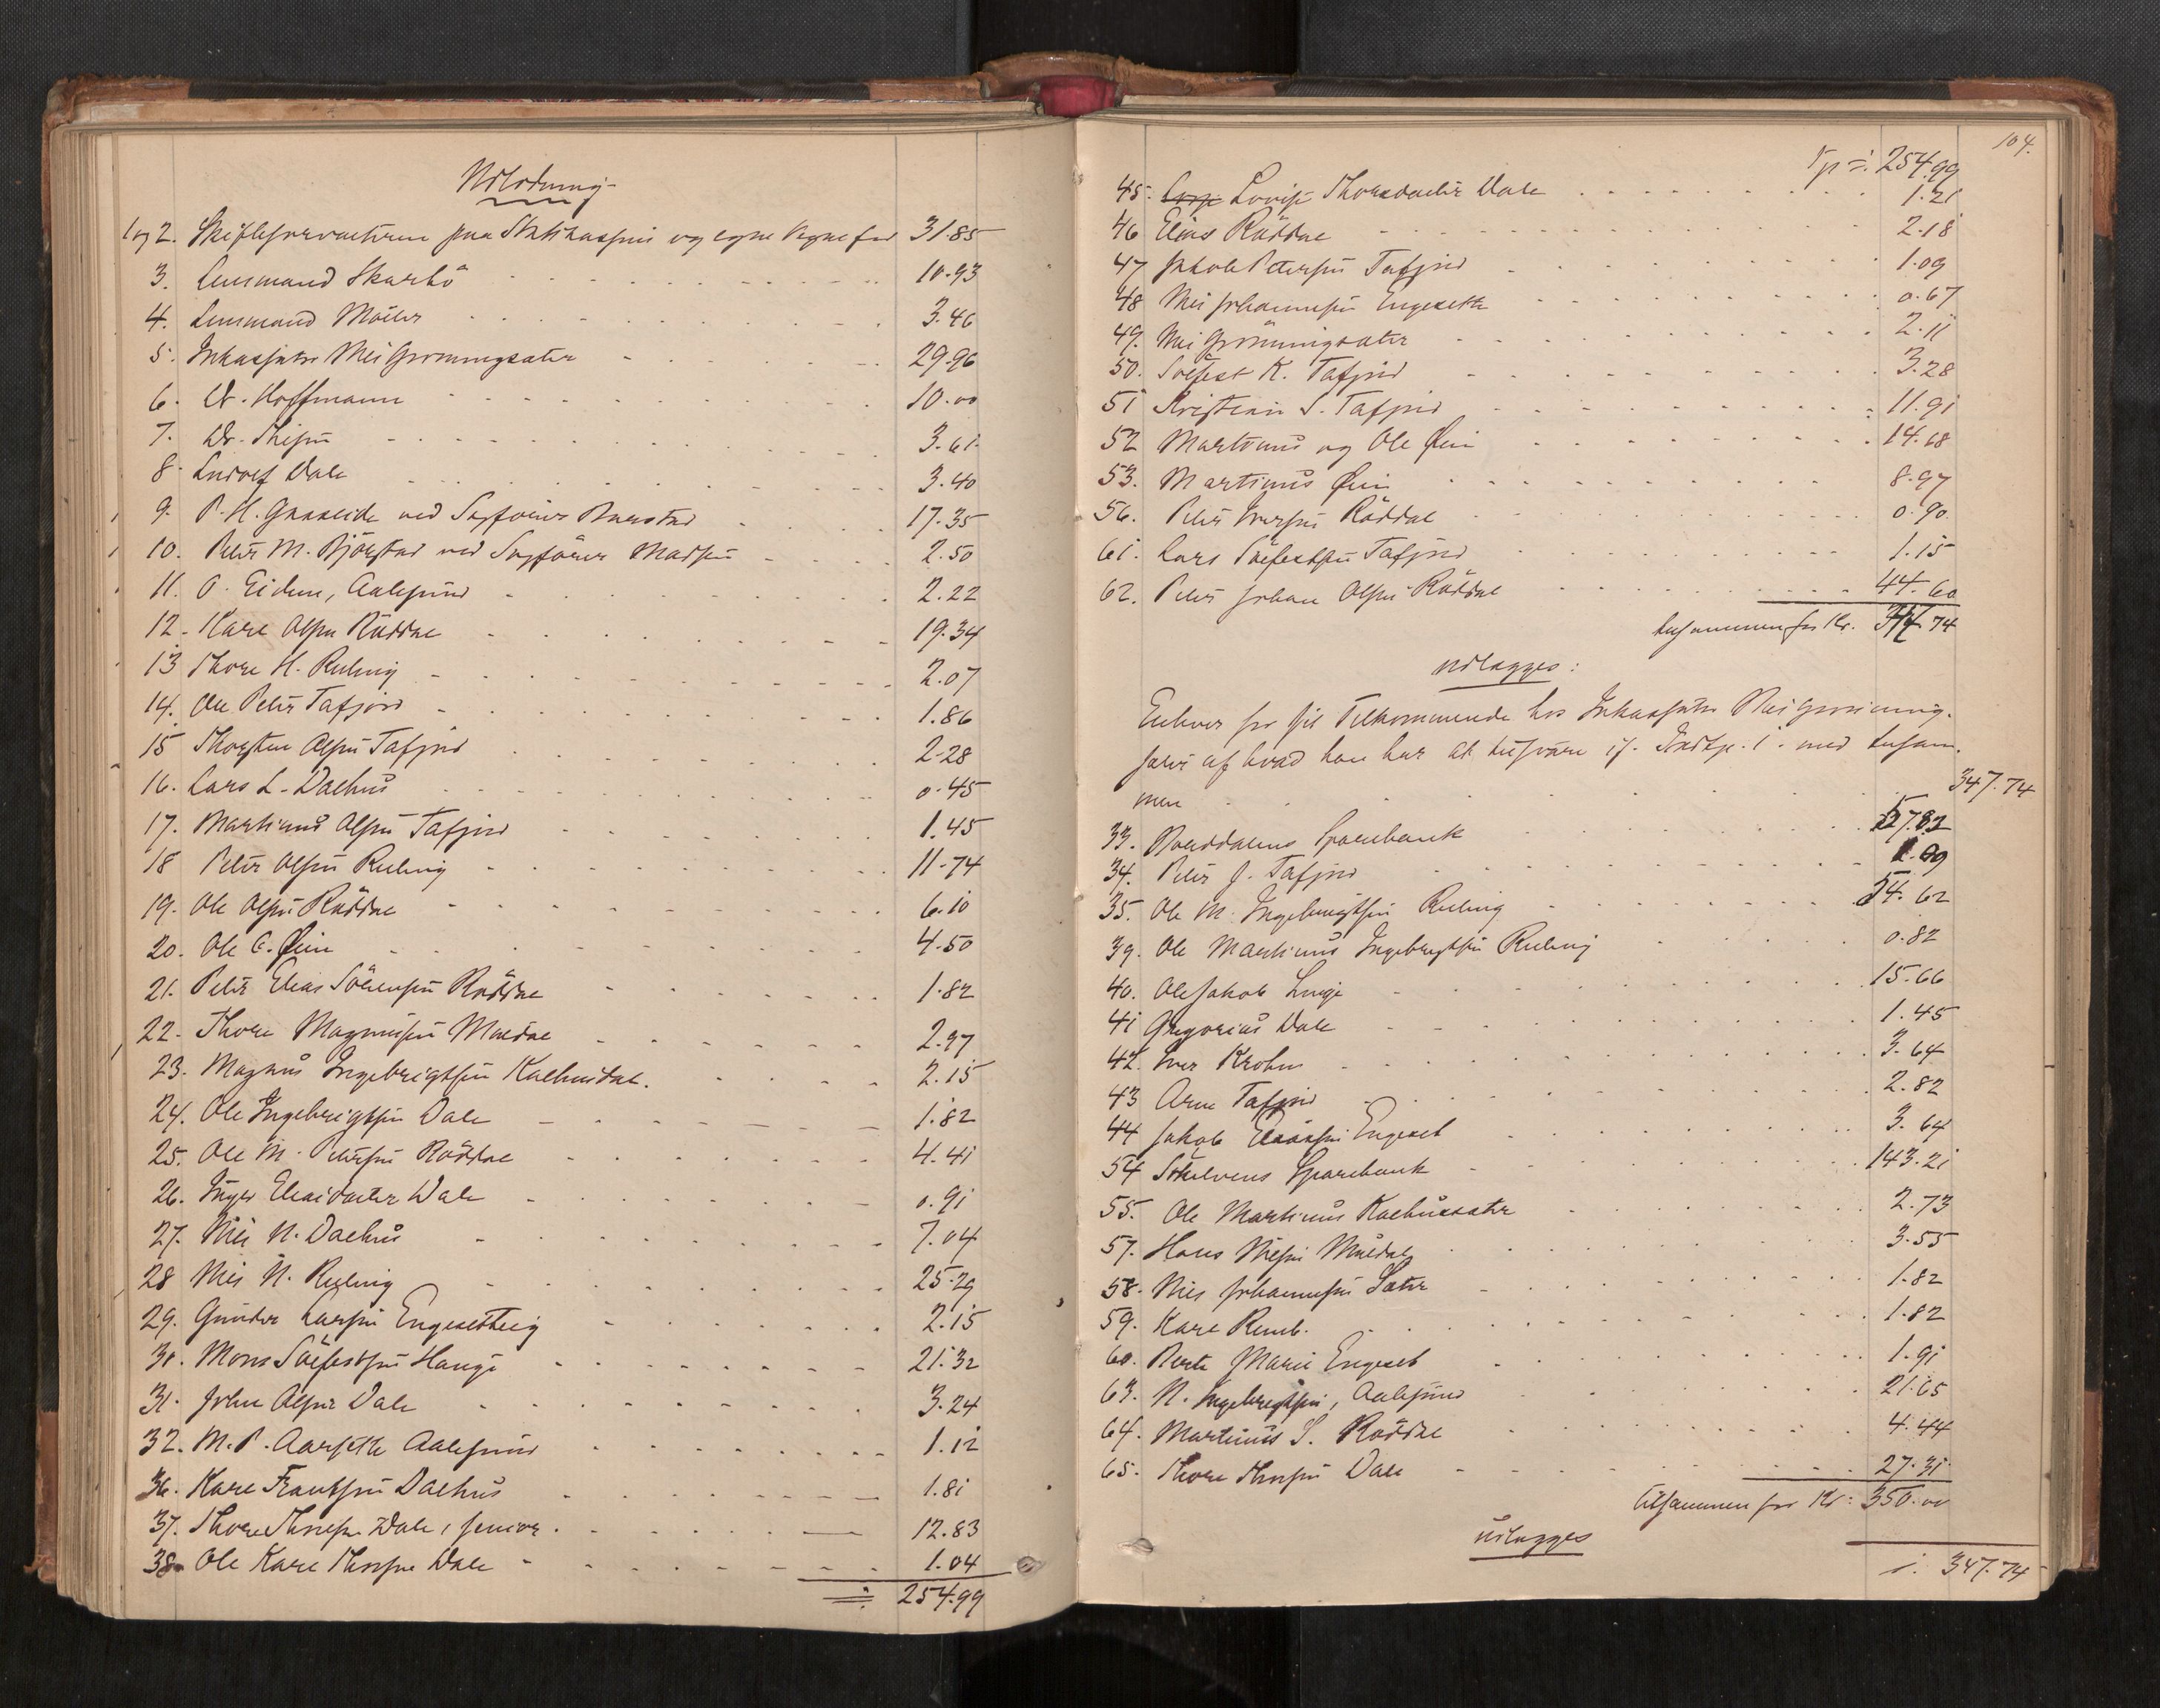 Udlodning
1 og 2. Skifteforvalteren paa Statskassens og egne Vegne for 31.85
3. Lensmand Skarbö 10.93
4. Lensmand Möller 3.46
5. Inkassator Nils Grönningsæter 29.96
6. Dr. Hoffmann 10.00
7. Dr. Thisen 3.61
8. Ludolf Dale 3.40
9. P. H. Gaaseide ved Sagförer 17.35
10. Peter M. Björstad ved Sagförer Madsen 2.50
11. O. Eidem, Aalesund 2.22
12. Kare Olsen Röddal 19.34
13 Thore H. Reling 2.07
14. Ole Peter Tafjord 1.86
15 Thorsten Olsen Tafjord 2.28
16. Lars L. Dalhus 0.45
17. Martinus Olsen Tafjord 1.45
18 Peter Olsen Reling 11.74
19. Ole Olsen Röddal 6.10
20. Ole C. Øien 4.50
21. Peter Elias Sörensen Röddal 1.82
22. Thore Magnusen Muldal 2.97
23. Magnus Ingebrigtsen Kalhusdal. 2.15
24. Ole Ingebrigtsen Dale 1.82
25. Ole M. Petersen Röddal 4.41
26. Inger Eliasdatter Dale 0.91
27. Nils N. Dalhus 7.04
28 Nils N. Reling 25.29
29. Gunder Larsen Engesetteig 2.15
30. Mons Sölfestsen Hauge 21.32
31. John Olsen Dale 3.24
32. M. P. Aarseth Aalesund 1.12
36. Kare Frantsen Dalhus 1.81
37. Thore Thoresen Dale, senior. 12.83
38. Ole Kare Thoresen Dale 1.04
254.99
104.
254.99
45. Lovise Thorsdatter Dale 1.21
46 Elias Röddal 2.18
47 Jakob Petersen Tafjord 1.09
48 Nils Johannesen Engeseth 0.67
49. Nils Grönningsæter 2.11
50. Sölfest K. Tafjord 3.28
51 Kristian S. Tafjord 11.91
52 Martinus og Ole Øien 14.68
53. Martinus Øien 8.97
56. Peter Iversen Röddal 0.90
61. Lars Sölfestsen Tafjord 1.15
62. Peter Johan Olsen Röddal 44.60
tilsammen for Kr. 347.74
udlægges:
Enhver for sit Tilkommende hos Inkassator Nils Grönning-
sæter af hvad han har at tilsvare if. Indtp. 1. med tilsam-
men 347.74
33. Norddalens Sparebank 57.82
34. Peter J. Tafjord 1.09
35. Ole M. Ingebrigtsen Reling 54.62
39. Ole Martinus Ingebrigtsen Reling 0.82
40. Ole Jakob Linge 15.66
41 Gregorius Dale 1.45
42. Iver Krohn 3.64
43 Arne Tafjord 2.82
44 Jakob Eliassen Engeset 3.64
54 Sökelvens Sparebank 143.21
55. Ole Martinus Kalhussæter 2.73
57. Hans Nilsen Muldal 3.55
58. Nils Johannesen Sæter 1.82
59. Kare Remb. 1.82
60. Berte Marie Engeset 1.91
63. N. Ingebrigtsen, Aalesund 21.65
64. Martinus S. Röddal 4.44
65. Thore Thoresen Dale 27.31
tilsammen for Kr: 350.00
udlægges
347.74